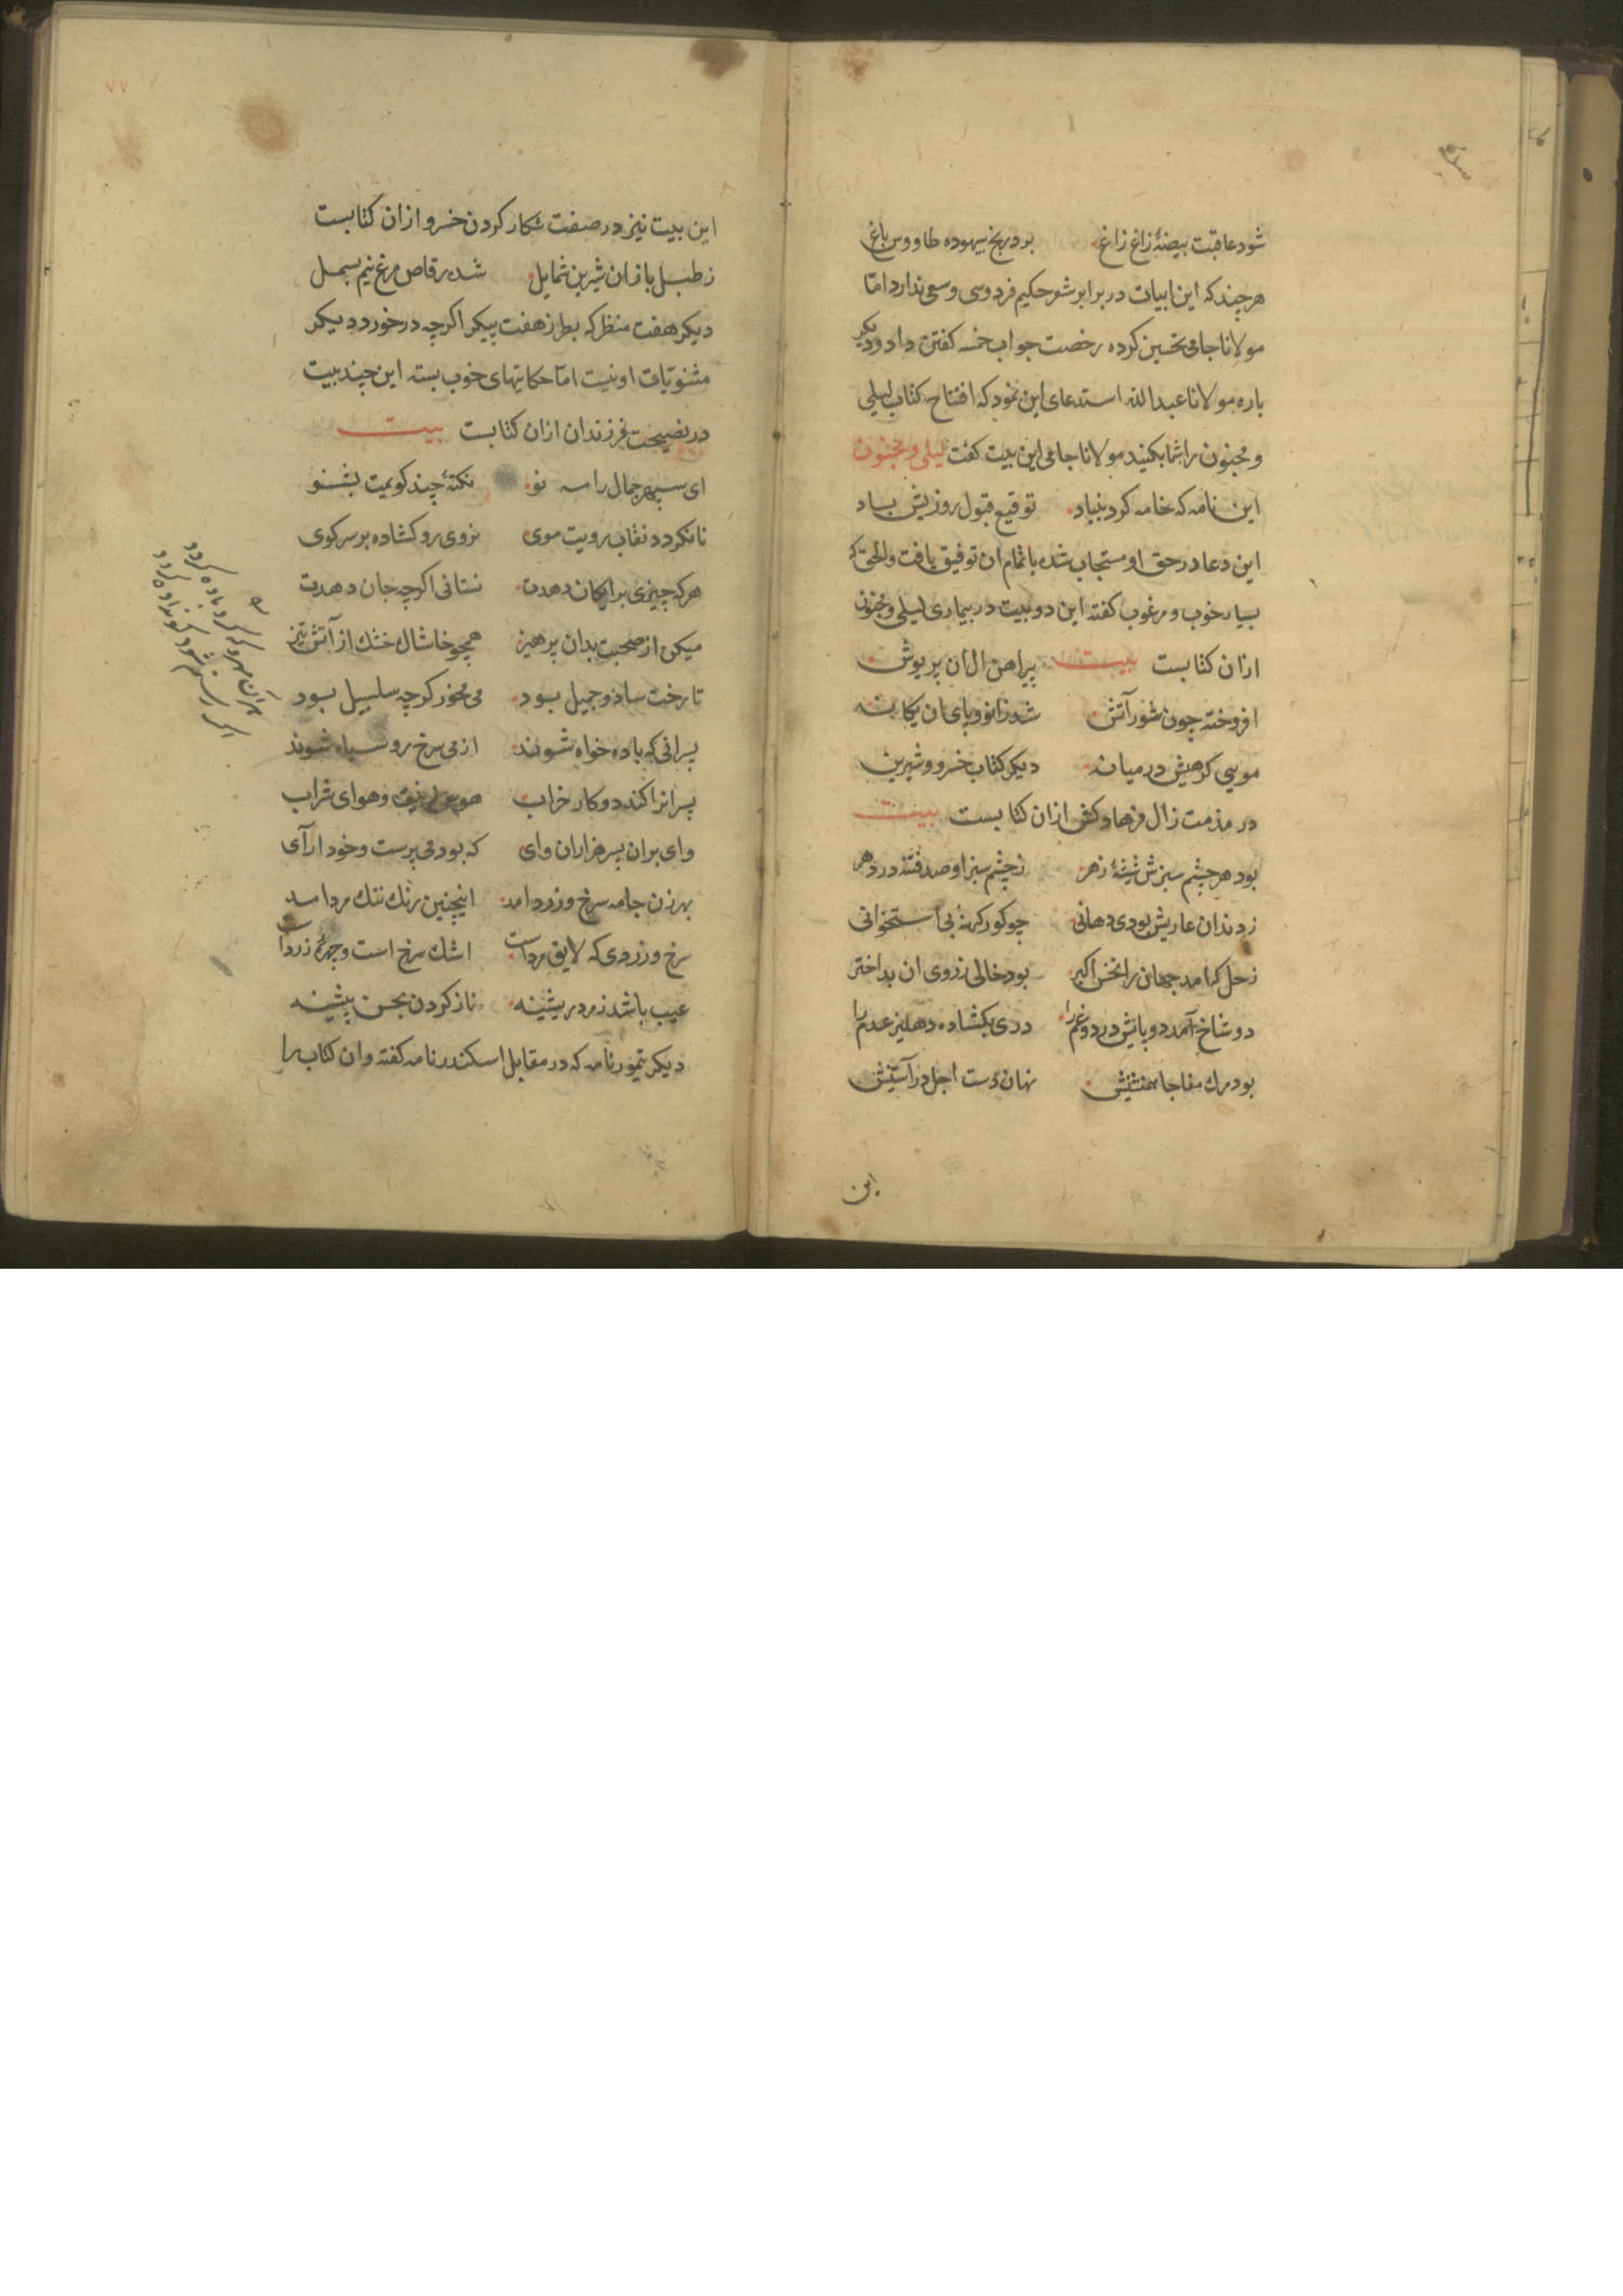 شود عاقبت بیضهٔ زاغ زاغ برد رنج بیهوده طاووس باغ
هرچند که این ابیات در برابر شعر حکیم فردوسی وسعی ندارد امّا
مولانا جامی تحسین کرده رخصت جواب خمسه کفتن داد و دیکر
باره مولانا عبدالله استدعای این نمود که افتتاح کتاب لیلی
و مجنون را شما بکنید مولانا جامی این بیت کفت لیلی و مجنون
این نامه که خامه کرد بنیاد توقیع قبول روزیش باد
این دعا در حق او مستجاب شده باتمام ان توفیق یافت والحق که
بسیار خوب و مرغوب کفته این دو بیت در بیماری لیلی و مجنون
ازان کتابست بیت پیراهن ال ان پریوش
افروخته چون شور آتش شد زانو و پای ان یکانه
مویی کرهیش در میانه دیکر کتاب خسرو و شیرین
در مذمت زال فرهاد کش ازان کتابست بیت
بود هر چشم سبزش شیشهٔ زهر ز چشم سبز او صد فتنه در دهر
ز دندان عاریش بودی دهانی چو کور کهنهٔ بی استخوانی
زحل که امد جهان را نحس اکبر بود خالی ز روی ان بداختر
دو شاخ آمد دو پایش درد و غم را دری بکشاده دهلیز عدم را
بود مرك مفاجا همنشینش نهان دست اجل در آستینش
این
۷۷
این بیت نیز در صفت شکار کردن خسرو ازان کتابست
ز طبل باز ان شیرین شمایل شده رقاص مرغ نیم بسمل
دیکر هفت منظر که بطرز هفت پیکر اکرچه در خورد دیکر
مثنویّات او نیست امّا حکایتهای خوب بسته این چند بیت
در نصیحت فرزندان ازان کتابست بیت
ای سپهر جمال را مه نو نکتهٔ چند کویمت بشنو
تا نکردد نقاب رویت موی نروی رو کشاده بر سر کوی
هرکه چیزی برایکان دهدت نستانی اکرچه جان دهدت
میکن از صحبت بدان پرهیز همچو خاشاك خشك از آتش تیز
تا رخت ساده و جمیل بود می مخور کرچه سلسبیل بود
پسرانی که باده خواه شوند از می سرخ رو سیاه شوند
پسرانرا کند دو کار خراب هوس و هوای شراب
وای بران پسر هزاران وای که بود می پرست و خود ارآی
بهر زن جامه سرخ و زرد امد اینچنین رنك ننك مرد امد
سرخ و زردی که لایق مرد است اشك سرخ است و چهرهٔ زرد است
عیب باشد ز مرد ریشینه ناز کردن بحسن پیشینه
دیکر تیمور نامه که در مقابل اسکندر نامه کفته و ان کتاب را